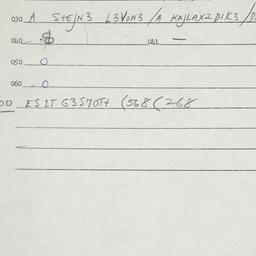 030 A S+E/N3 L3VON3 /A KAJLAX2 DIK3 /D
040 $ 042 —
050 O
060 O
00 ES2T G3S70T+ (568 (268